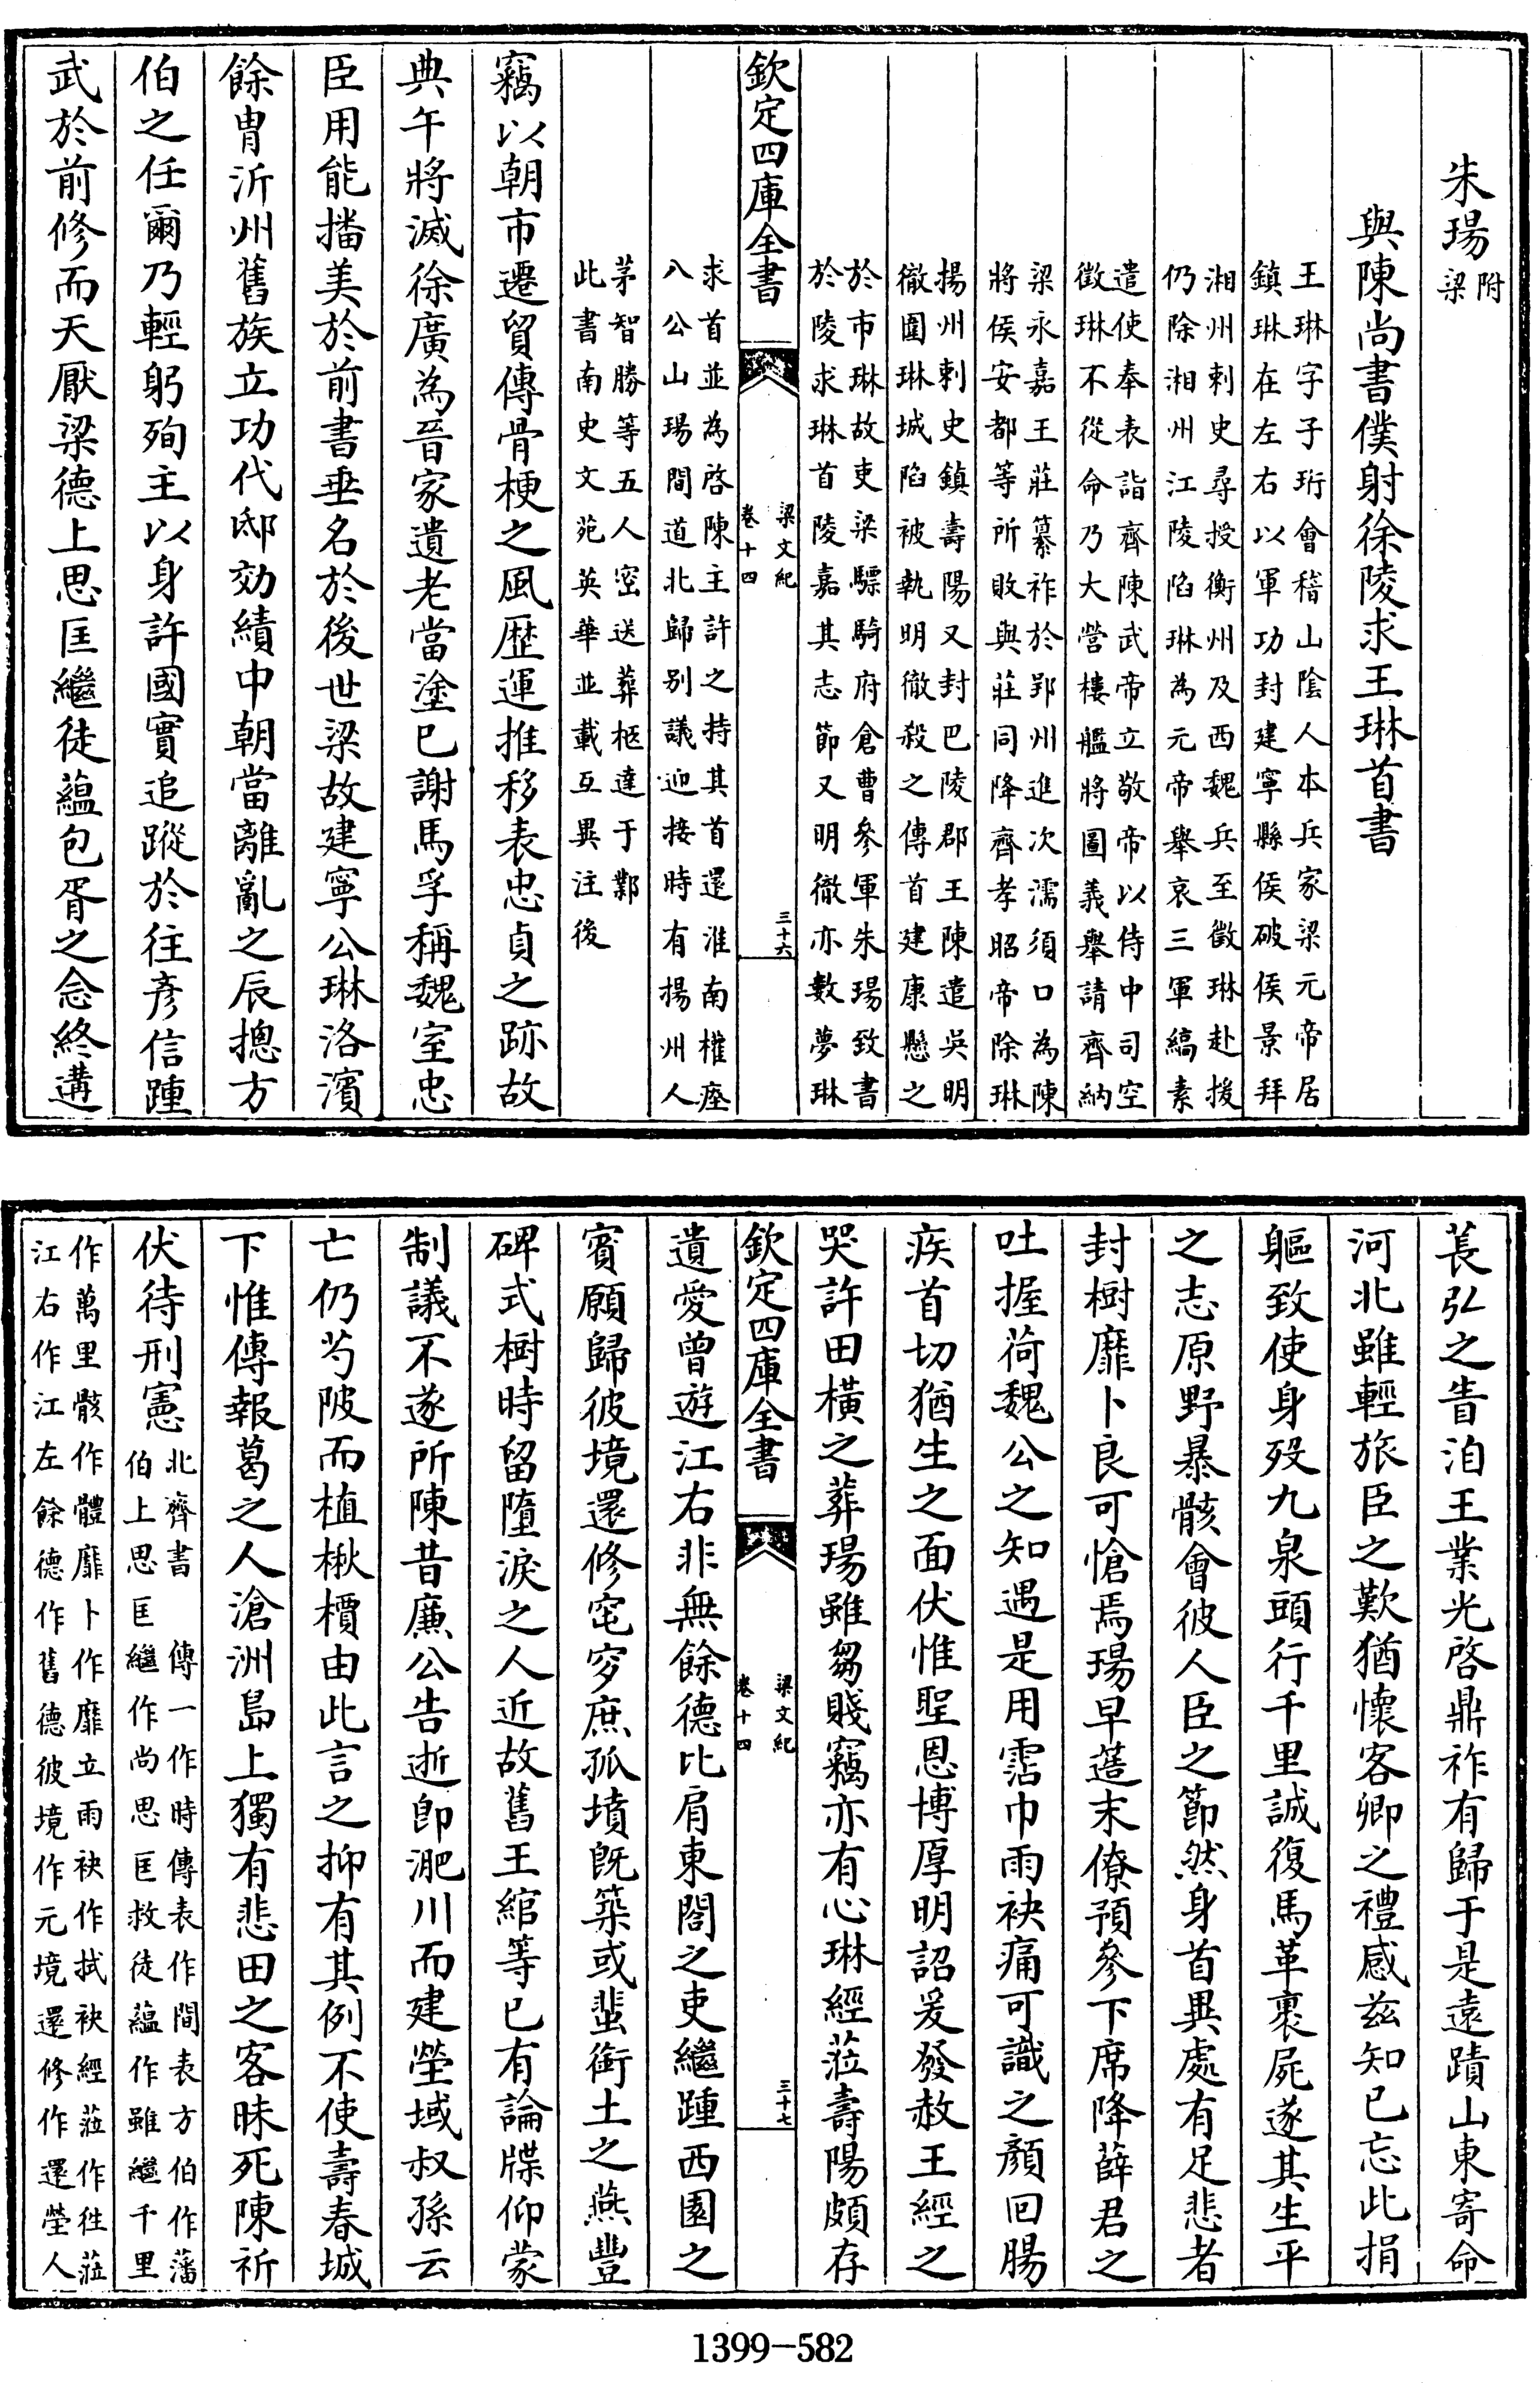 朱瑒附梁
與陳尚書僕射徐陵求王琳首書
王琳字子珩會稽山陰人本兵家梁元帝居
鎮琳在左右以軍功封建寧縣侯破侯景拜
湘州刺史尋授衡州及西魏兵至徵琳赴援
仍除湘州江陵陷琳為元帝舉哀三軍縞素
遣使奉表詣齊陳武帝立敬帝以侍中司空
徵琳不從命乃大營樓艦將圖義舉請齊納
梁永嘉王莊纂祚於郢州進次濡須口為陳
將侯安都等所敗與莊同降齊孝昭帝除琳
揚州刺史鎮壽陽又封巴陵郡王陳遣吳明
徹圍琳城陷被執明徹殺之傳首建康懸之
於市琳故吏梁驃騎府倉曹參軍朱瑒致書
於陵求琳首陵嘉其志節又明徹亦數夢琳
欽定四庫全書
梁文紀
卷十四
三十六
求首並為啓陳主許之持其首還淮南權瘞
八公山瑒間道北歸別議迎接時有揚州人
茅智勝等五人密送葬柩達于鄴
此書南史文苑英華並載互異注後
竊以朝市遷貿傳骨梗之風歷運推移表忠貞之跡故
典午將滅徐廣為晉家遺老當塗已謝馬孚稱魏室忠
臣用能播美於前書垂名於後世梁故建寧公琳洛濱
餘胄沂州舊族立功代邸効績中朝當離亂之辰摠方
伯之任爾乃輕躬殉主以身許國實追蹤於往彥信踵
武於前修而天厭梁德上思匡繼徒蘊包胥之念終遘
萇弘之眚洎王業光啓鼎祚有歸于是遠蹟山東寄命
河北雖輕旅臣之歎猶懷客卿之禮感茲知己忘此捐
軀致使身歿九泉頭行千里誠復馬革裹屍遂其生平
之志原野暴骸會彼人臣之節然身首異處有足悲者
封樹靡卜良可愴焉瑒早簉末僚預參下席降薛君之
吐握荷魏公之知遇是用霑巾雨袂痛可識之顏回腸
疾首切猶生之面伏惟聖恩博厚明詔爰發赦王經之
哭許田橫之葬瑒雖芻賤竊亦有心琳經莅壽陽頗存
欽定四庫全書
梁文紀
卷十四
三十七
遺愛曾遊江右非無餘德比肩東閣之吏繼踵西園之
賓願歸彼境還修窀穸庶孤墳既築或蜚銜土之燕豐
碑式樹時留墮淚之人近故舊王綰等已有論牒仰蒙
制議不遂所陳昔廉公告逝卽淝川而建塋域叔孫云
亡仍芍陂而植楸檟由此言之抑有其例不使壽春城
下惟傳報葛之人滄洲島上獨有悲田之客昧死陳祈
伏待刑憲
北齊書　傳一作時傳表作間表方伯作藩
伯上思匡繼作尚思匡救徒蘊作雖繼千里
作萬里骸作體靡卜作靡立雨袂作拭袂經莅作徃莅
江右作江左餘德作舊德彼境作元境還修作還塋人
1399—582